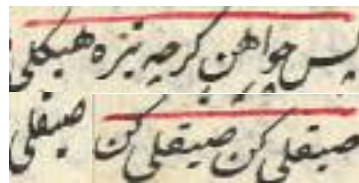 پس چو آهن گرچه تیره هیکلی
صیقلی کن صیقلی کن صیقلی